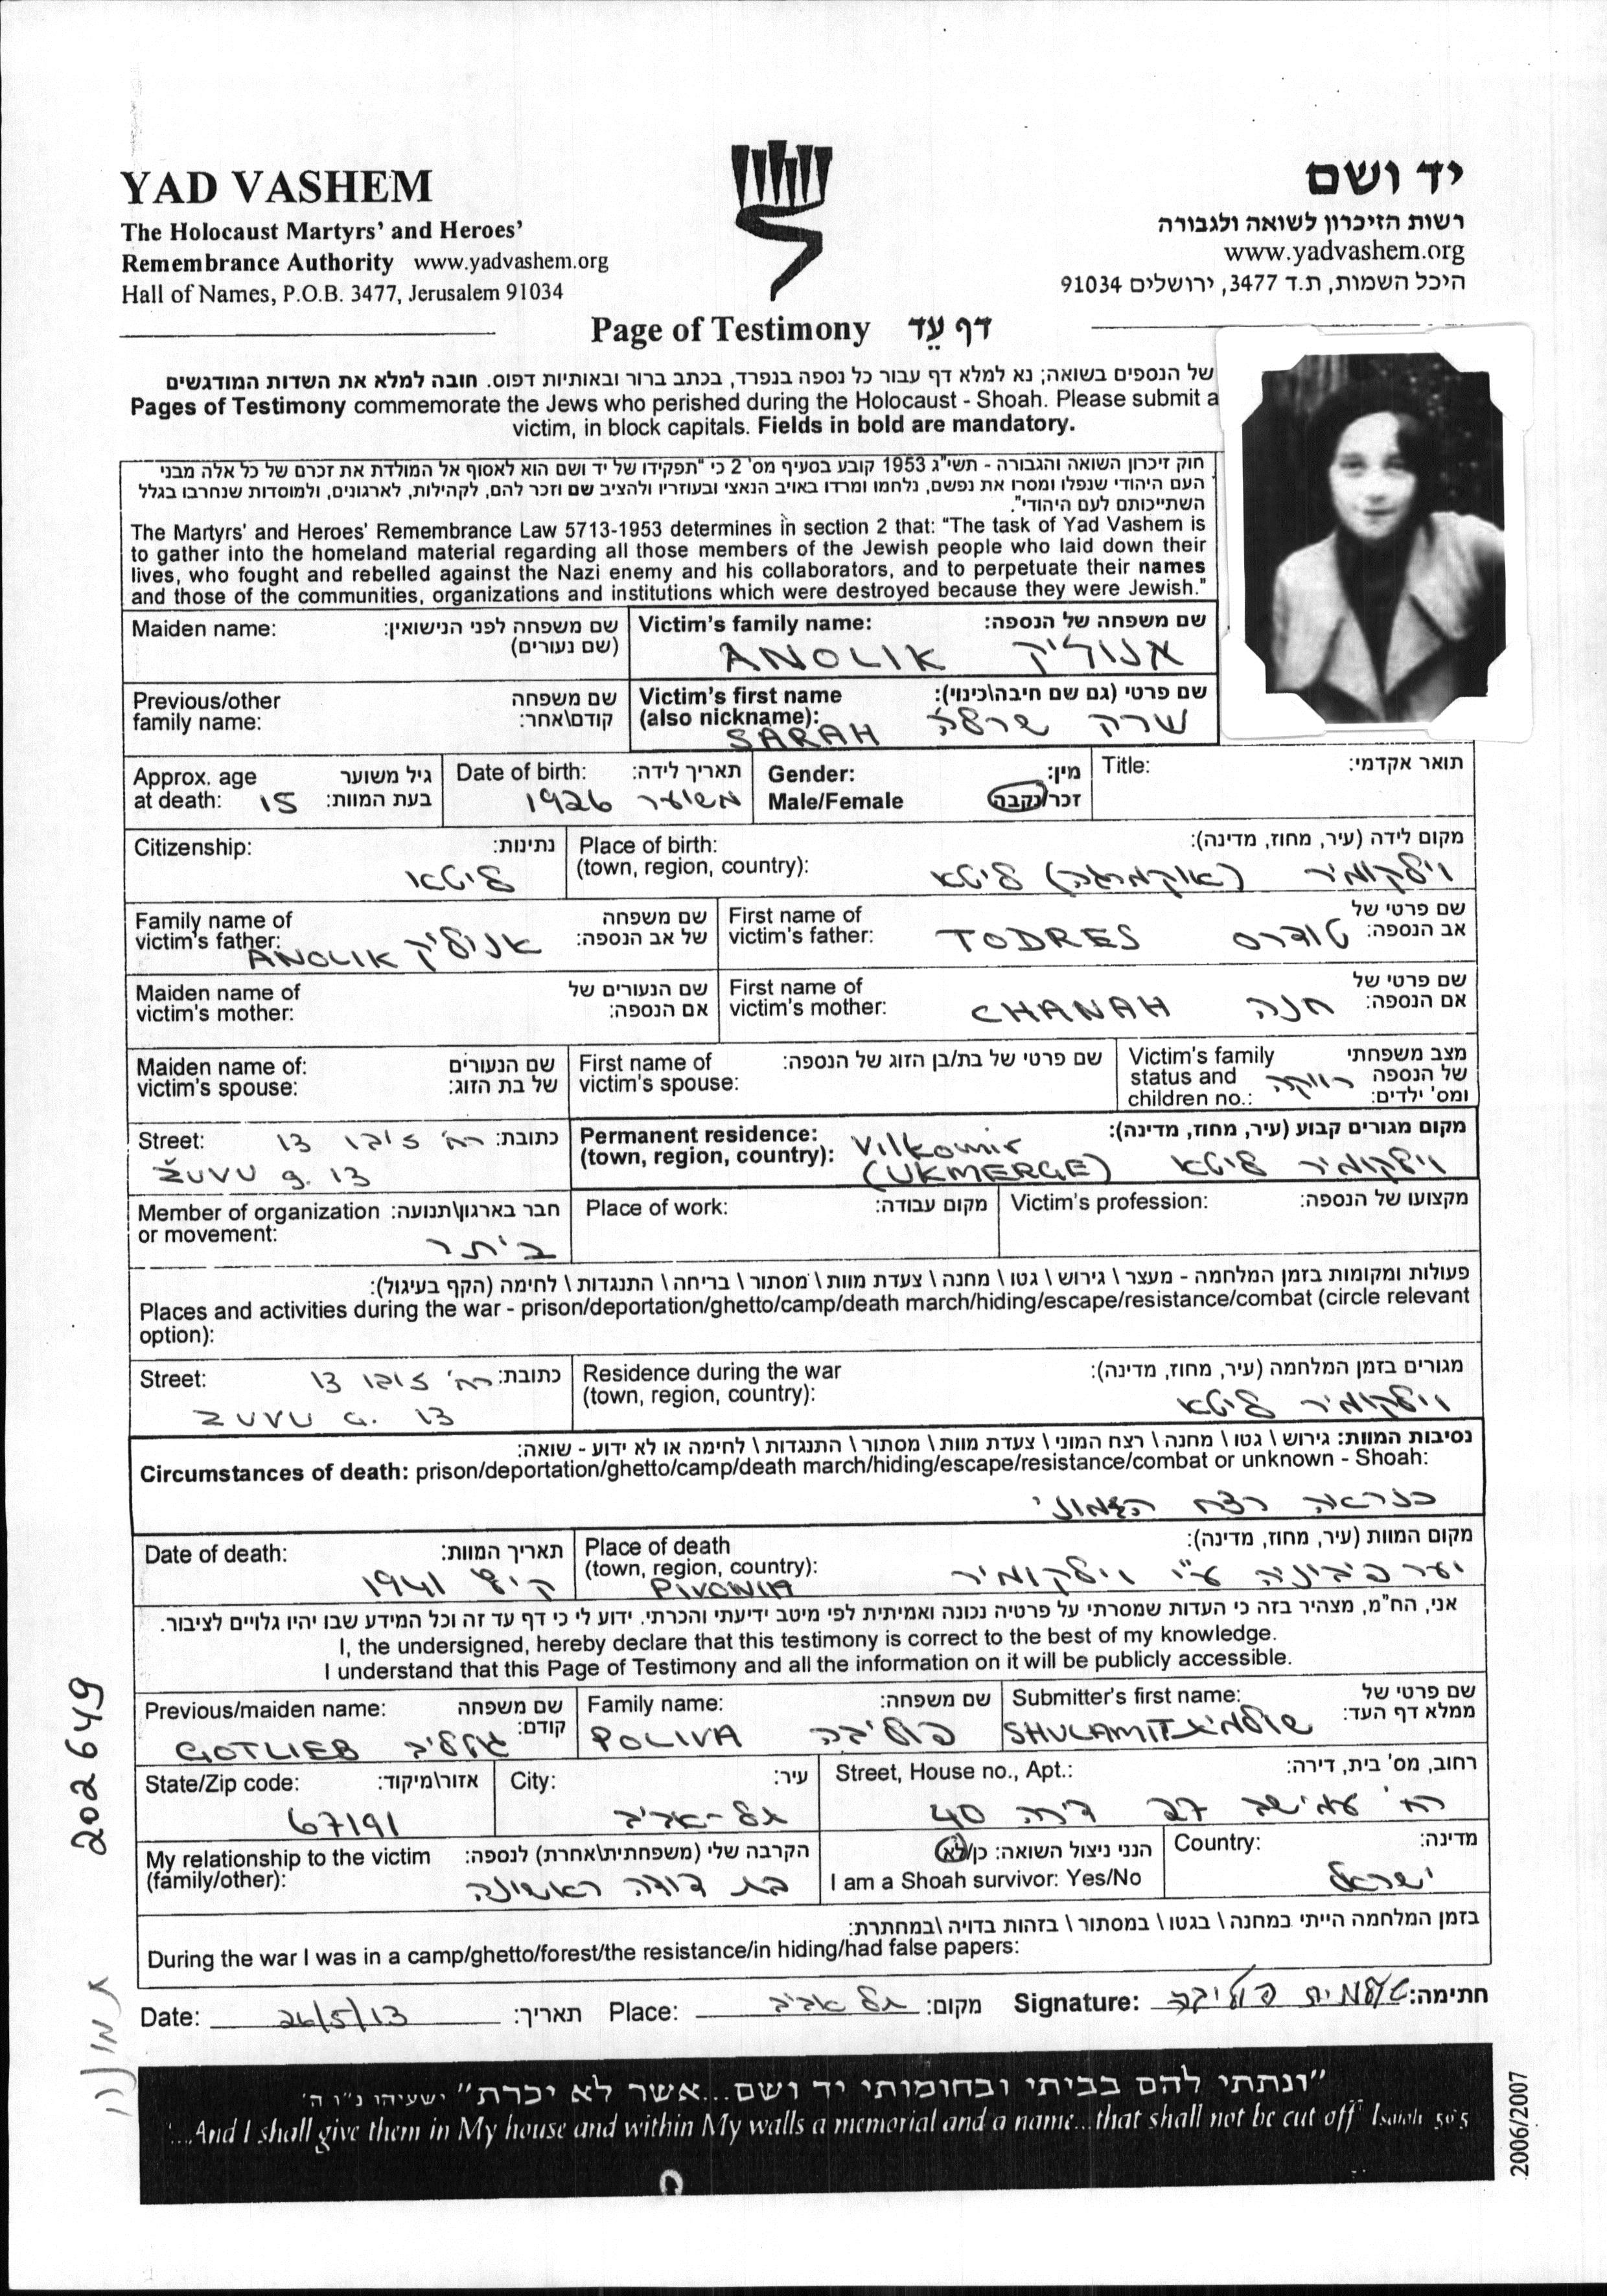 YAD VASHEM
The Holocaust Martyrs' and Heroes'
Remembrance Authority www.yadvashem.org
Hall of Names, P.O.B. 3477, Jerusalem 91034
יד ושם
רשות הזיכרון לשואה ולגבורה
www.yadvashem.org
היכל השמות, ת.ד 3477, ירושלים 91034
Page of Testimony דף עֵד
של הנספים בשואה; נא למלא דף עבור כל נספה בנפרד, בכתב ברור ובאותיות דפוס. חובה למלא את השדות המודגשים
Pages of Testimony commemorate the Jews who perished during the Holocaust - Shoah. Please submit a
victim, in block capitals. Fields in bold are mandatory.
חוק זיכרון השואה והגבורה - תשי"ג 1953 קובע בסעיף מס' 2 כי "תפקידו של יד ושם הוא לאסוף אל המולדת את זכרם של כל אלה מבני
העם היהודי שנפלו ומסרו את נפשם, נלחמו ומרדו באויב הנאצי ובעוזריו ולהציב שם וזכר להם, לקהילות, לארגונים, ולמוסדות שנחרבו בגלל
השתייכותם לעם היהודי".
The Martyrs' and Heroes' Remembrance Law 5713-1953 determines in section 2 that: "The task of Yad Vashem is
to gather into the homeland material regarding all those members of the Jewish people who laid down their
lives, who fought and rebelled against the Nazi enemy and his collaborators, and to perpetuate their names
and those of the communities, organizations and institutions which were destroyed because they were Jewish."
Maiden name: שם משפחה לפני הנישואין:
(שם נעורים)
Victim's family name: שם משפחה של הנספה:
ANOLIK אנוליק
Previous/other שם משפחה
family name: קודם\אחר:
Victim's first name שם פרטי (גם שם חיבה\כינוי):
(also nickname):
SARAH שרה שרל'ה
Approx. age גיל משוער
at death: 15 בעת המוות:
Date of birth: תאריך לידה:
1926 משוער
Gender: מין:
Male/Female זכר/נקבה
Title: תואר אקדמי:
Citizenship: נתינות:
ליטא
Place of birth: מקום לידה (עיר, מחוז, מדינה):
(town, region, country): וילקומיר (אוקמרגה) ליטא
Family name of שם משפחה
victim's father: של אב הנספה:
ANOLIK אנוליק
First name of שם פרטי של
victim's father: TODRES טודרס אב הנספה:
Maiden name of שם הנעורים של
victim's mother: אם הנספה:
First name of שם פרטי של
victim's mother: CHANAH חנה אם הנספה:
Maiden name of: שם הנעורים
victim's spouse: של בת הזוג:
First name of שם פרטי של בת/בן הזוג של הנספה:
victim's spouse:
Victim's family מצב משפחתי
status and רווקה של הנספה
children no.: ומס' ילדים:
Street: כתובת: רח' זובו 13
ŽUVU g. 13
Permanent residence: מקום מגורים קבוע (עיר, מחוז, מדינה):
(town, region, country): Vilkomir
(UKMERGE) וילקומיר ליטא
Member of organization חבר בארגון\תנועה:
or movement: בית"ר
Place of work: מקום עבודה:
Victim's profession: מקצועו של הנספה:
פעולות ומקומות בזמן המלחמה - מעצר \ גירוש \ גטו \ מחנה \ צעדת מוות \ מסתור \ בריחה \ התנגדות \ לחימה (הקף בעיגול):
Places and activities during the war - prison/deportation/ghetto/camp/death march/hiding/escape/resistance/combat (circle relevant
option):
Street: כתובת: רח' זובו 13
ZUVU G. 13
Residence during the war מגורים בזמן המלחמה (עיר, מחוז, מדינה):
(town, region, country): וילקומיר ליטא
נסיבות המוות: גירוש \ גטו \ מחנה \ רצח המוני \ צעדת מוות \ מסתור \ התנגדות \ לחימה או לא ידוע - שואה:
Circumstances of death: prison/deportation/ghetto/camp/death march/hiding/escape/resistance/combat or unknown - Shoah:
כנראה רצח המוני
Date of death: תאריך המוות:
קיץ 1941
Place of death מקום המוות (עיר, מחוז, מדינה):
(town, region, country): יער פיבוניה ע"י וילקומיר
PIVONIA
אני, הח"מ, מצהיר בזה כי העדות שמסרתי על פרטיה נכונה ואמיתית לפי מיטב ידיעתי והכרתי. ידוע לי כי דף עד זה וכל המידע שבו יהיו גלויים לציבור.
I, the undersigned, hereby declare that this testimony is correct to the best of my knowledge.
I understand that this Page of Testimony and all the information on it will be publicly accessible.
Previous/maiden name: שם משפחה
קודם:
GOTLIEB גוטליב
Family name: שם משפחה:
POLIVA פוליבה
Submitter's first name: שם פרטי של
ממלא דף העד:
SHULAMIT שולמית
State/Zip code: אזור\מיקוד:
67191
City: עיר:
תל-אביב
Street, House no., Apt.: רחוב, מס' בית, דירה:
רח' עמישב 27 דירה 40
My relationship to the victim הקרבה שלי (משפחתית\אחרת) לנספה:
(family/other): בת דודה ראשונה
הנני ניצול השואה: כן/לא
I am a Shoah survivor: Yes/No
Country: מדינה:
ישראל
בזמן המלחמה הייתי במחנה \ בגטו \ במסתור \ בזהות בדויה \במחתרת:
During the war I was in a camp/ghetto/forest/the resistance/in hiding/had false papers:
Date: 26/5/13 תאריך: Place: תל אביב מקום: Signature: שולמית פוליבה חתימה:
"ונתתי להם בביתי ובחומותי יד ושם...אשר לא יכרת" ישעיהו נ"ו ה'
"...And I shall give them in My house and within My walls a memorial and a name...that shall not be cut off" Isaiah 56:5
202649
2006/2007